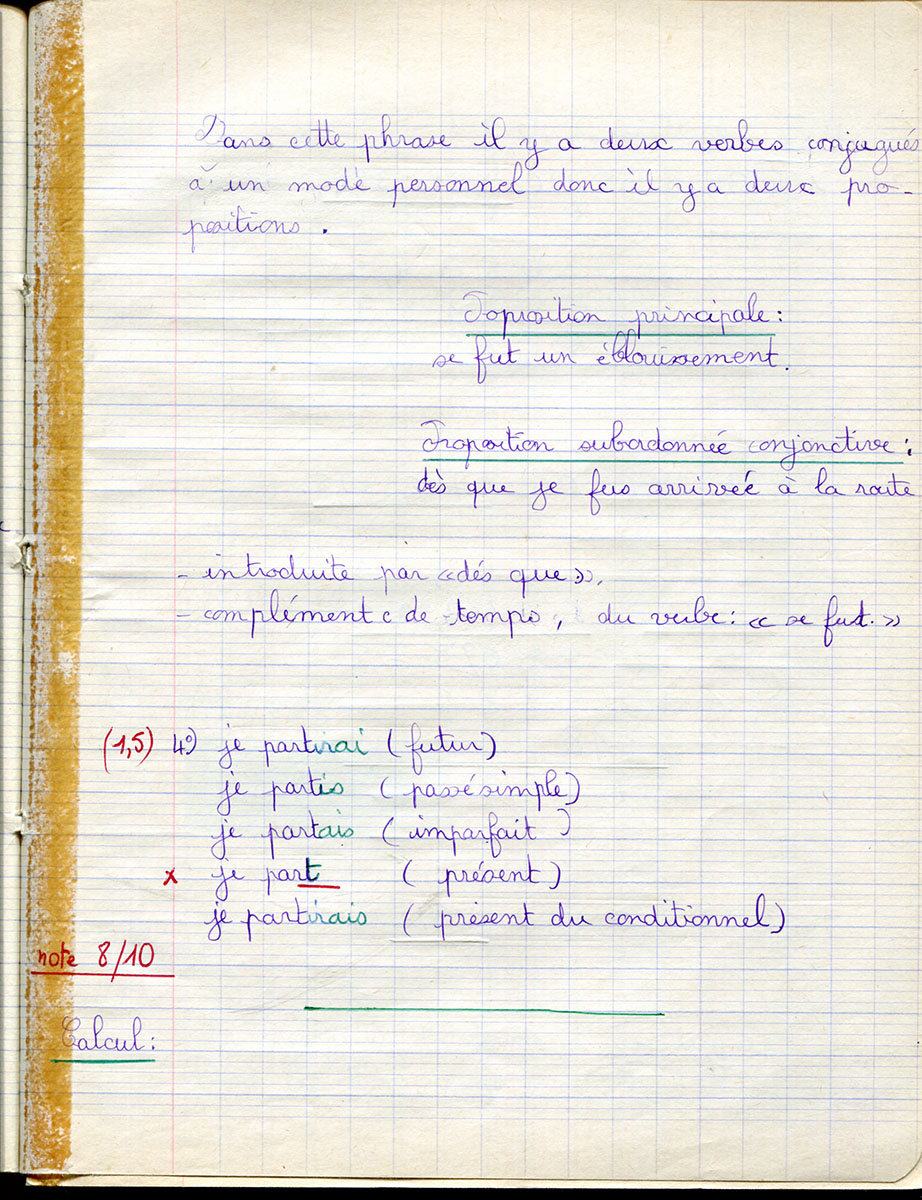 Dans cette phrase il y a deux verbes conjugués
à un mode personnel donc il y a deux pro-
positions.
Proposition principale:
se fut un éblouissement.
Proposition subordonnée conjonctive:
dès que je fus arrivée à la route
- introduite par «dés que».
- complément c de temps, du verbe: « se fut. »
(1,5) 4°) je partirai (futur)
je partis (passé simple)
je partais (imparfait)
x je part (présent)
je partirais (présent du conditionnel)
note 8/10
Calcul: